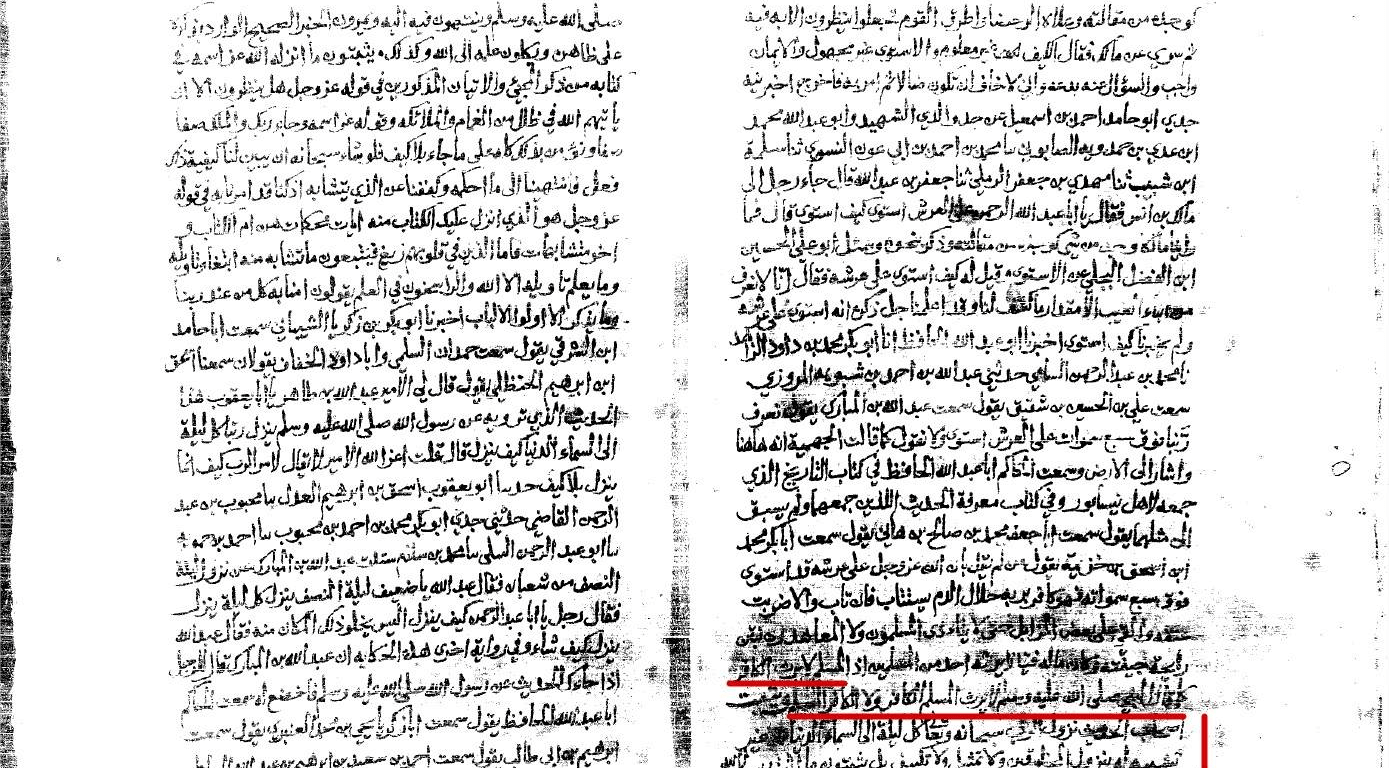 كوجده من مقالته وعلاه الرحضا واطرق القوم فجعلوا ينتظرون الامر به فيه
ثم سري عن مالك فقال الكيف غير معلوم والاستوى غير مجهول والايمان
واجب والسؤال عنه بدعة واني لاخاف ان تكون ضالا ثم امر به فاخرج اخبرنيه
جدي ابو حامد احمد بن اسمعيل عن جد والدي الشهيد وابو عبد الله محمد
ابن عدي بن حمدويه الصابوني نا محمد بن احمد بن ابي عون النسوي ثنا سلمة
ابن شبيب ثنا مهدي بن جعفر الرملي ثنا جعفر بن عبد الله قال جاء رجل الى
مالك بن انس فقال يا ابا عبد الله الرحمن على العرش استوى كيف استوى قال فما
مالك وجد من شي كوجده من مقالته وذكر نحوه وسئل ابو علي الحسين
ابن الفضل البجلي عن الاستوى وقيل له كيف استوى على عرشه فقال انا لا نعرف
من انباء الغيب الا مقدار ما كشف لنا وقد اعلمنا جل ذكره انه استوى على عرشه
ولم يخبرنا كيف استوى اخبرنا ابو عبد الله الحافظ انا ابو بكر محمد بن داود الزاهد
نا محمد بن عبد الرحمن السامي حدثني عبد الله بن احمد بن شبويه المروزي
سمعت علي بن الحسن بن شقيق يقول سمعت عبد الله بن المبارك يقول نعرف
ربنا فوق سبع سموات على العرش استوى ولا نقول كما قالت الجهمية انه هاهنا
واشار الى الارض وسمعت الحاكم ابا عبد الله الحافظ في كتاب التاريخ الذي
جمعه لاهل نيسابور وفي كتاب معرفة الحديث اللذين جمعهما ولم يسبق
الى مثلهما يقول سمعت ابا جعفر محمد بن صالح بن هاني يقول سمعت ابا بكر محمد
ابن اسحق بن خزيمة يقول من لم يقل بان الله عز وجل على عرشه قد استوى
فوق سبع سمواته فهو كافر بربه حلال الدم يستتاب فان تاب والا ضربت
عنقه والقي على بعض المزابل حتى لا يتاذى المسلمون ولا المعاهدون بنتن
رايحة جيفته وكان ماله فيا لا يرثه احد من المسلمين اذ المسلم لا يرث الكافر
كما قال النبي صلى الله عليه وسلم لا يرث المسلم الكافر ولا الكافر المسلم
اصحاب الحديث نزول الرب سبحانه وتعالى كل ليلة الى السماء الدنيا من غير
تشبيه له بنزول المخلوقين ولا تمثيل ولا تكييف بل يثبتون ما
صلى الله عليه وسلم وينتهون فيه اليه ويمرون الخبر الصحيح الوارد بذكره
على ظاهره ويكلون علمه الى الله وكذلك يثبتون ما انزله الله عز اسمه في
كتابه من ذكر المجيء والاتيان المذكورين في قوله عز وجل هل ينظرون الا ان
ياتيهم الله في ظلل من الغمام والملائكة وقوله عز اسمه وجاء ربك والملك صفا
صفا ونؤمن بذلك كله على ما جاء بلا كيف فلو شاء سبحانه ان يبين لنا كيفية ذلك
فعل فانتهينا الى ما احكمه وكففنا عن الذي يتشابه اذ كنا قد امرنا به في قوله
عز وجل هو الذي انزل عليك الكتاب منه ايات محكمات هن ام الكتاب و
اخر متشابهات فاما الذين في قلوبهم زيغ فيتبعون ما تشابه منه ابتغاء تاويله
وما يعلم تاويله الا الله والراسخون في العلم يقولون امنا به كل من عند ربنا
وما يذكر الا اولوا الالباب اخبرنا ابو بكر بن زكريا الشيباني سمعت ابا حامد
ابن الشرقي يقول سمعت حمدان السلمي وابا داود الخفاف يقولان سمعنا اسحق
ابن ابراهيم الحنظلي يقول قال لي الامير عبد الله بن طاهر يا ابا يعقوب هذا
الحديث الذي ترويه عن رسول الله صلى الله عليه وسلم ينزل ربنا كل ليلة
الى السماء الدنيا كيف ينزل قال قلت اعز الله الامير لا يقال لامر الرب كيف انما
ينزل بلا كيف حدثنا ابو يعقوب اسحق بن ابراهيم العدل نا محبوب بن عبد
الرحمن القاضي حدثني جدي ابو بكر محمد بن احمد بن محبوب نا احمد بن حمويه
نا ابو عبد الرحمن السلمي نا محمد بن سلام سئلت عبد الله بن المبارك عن نزول ليلة
النصف من شعبان فقال عبد الله يا ضعيف ليلة النصف ينزل كل ليلة ينزل
فقال رجل يا ابا عبد الرحمن كيف ينزل اليس يخلو ذلك المكان منه فقال عبد الله
ينزل كيف شاء وفي رواية اخرى هذه الحكاية ان عبد الله بن المبارك قال للرجل
اذا جاءك الحديث عن رسول الله صلى الله عليه وسلم فاخضع له سمعت الحاكم
ابا عبد الله الحافظ يقول سمعت ابا زكريا يحيى بن محمد العنبري يقول سمعت
ابراهيم بن ابي طالب يقول سمعت احمد بن سعيد بن ابراهيم